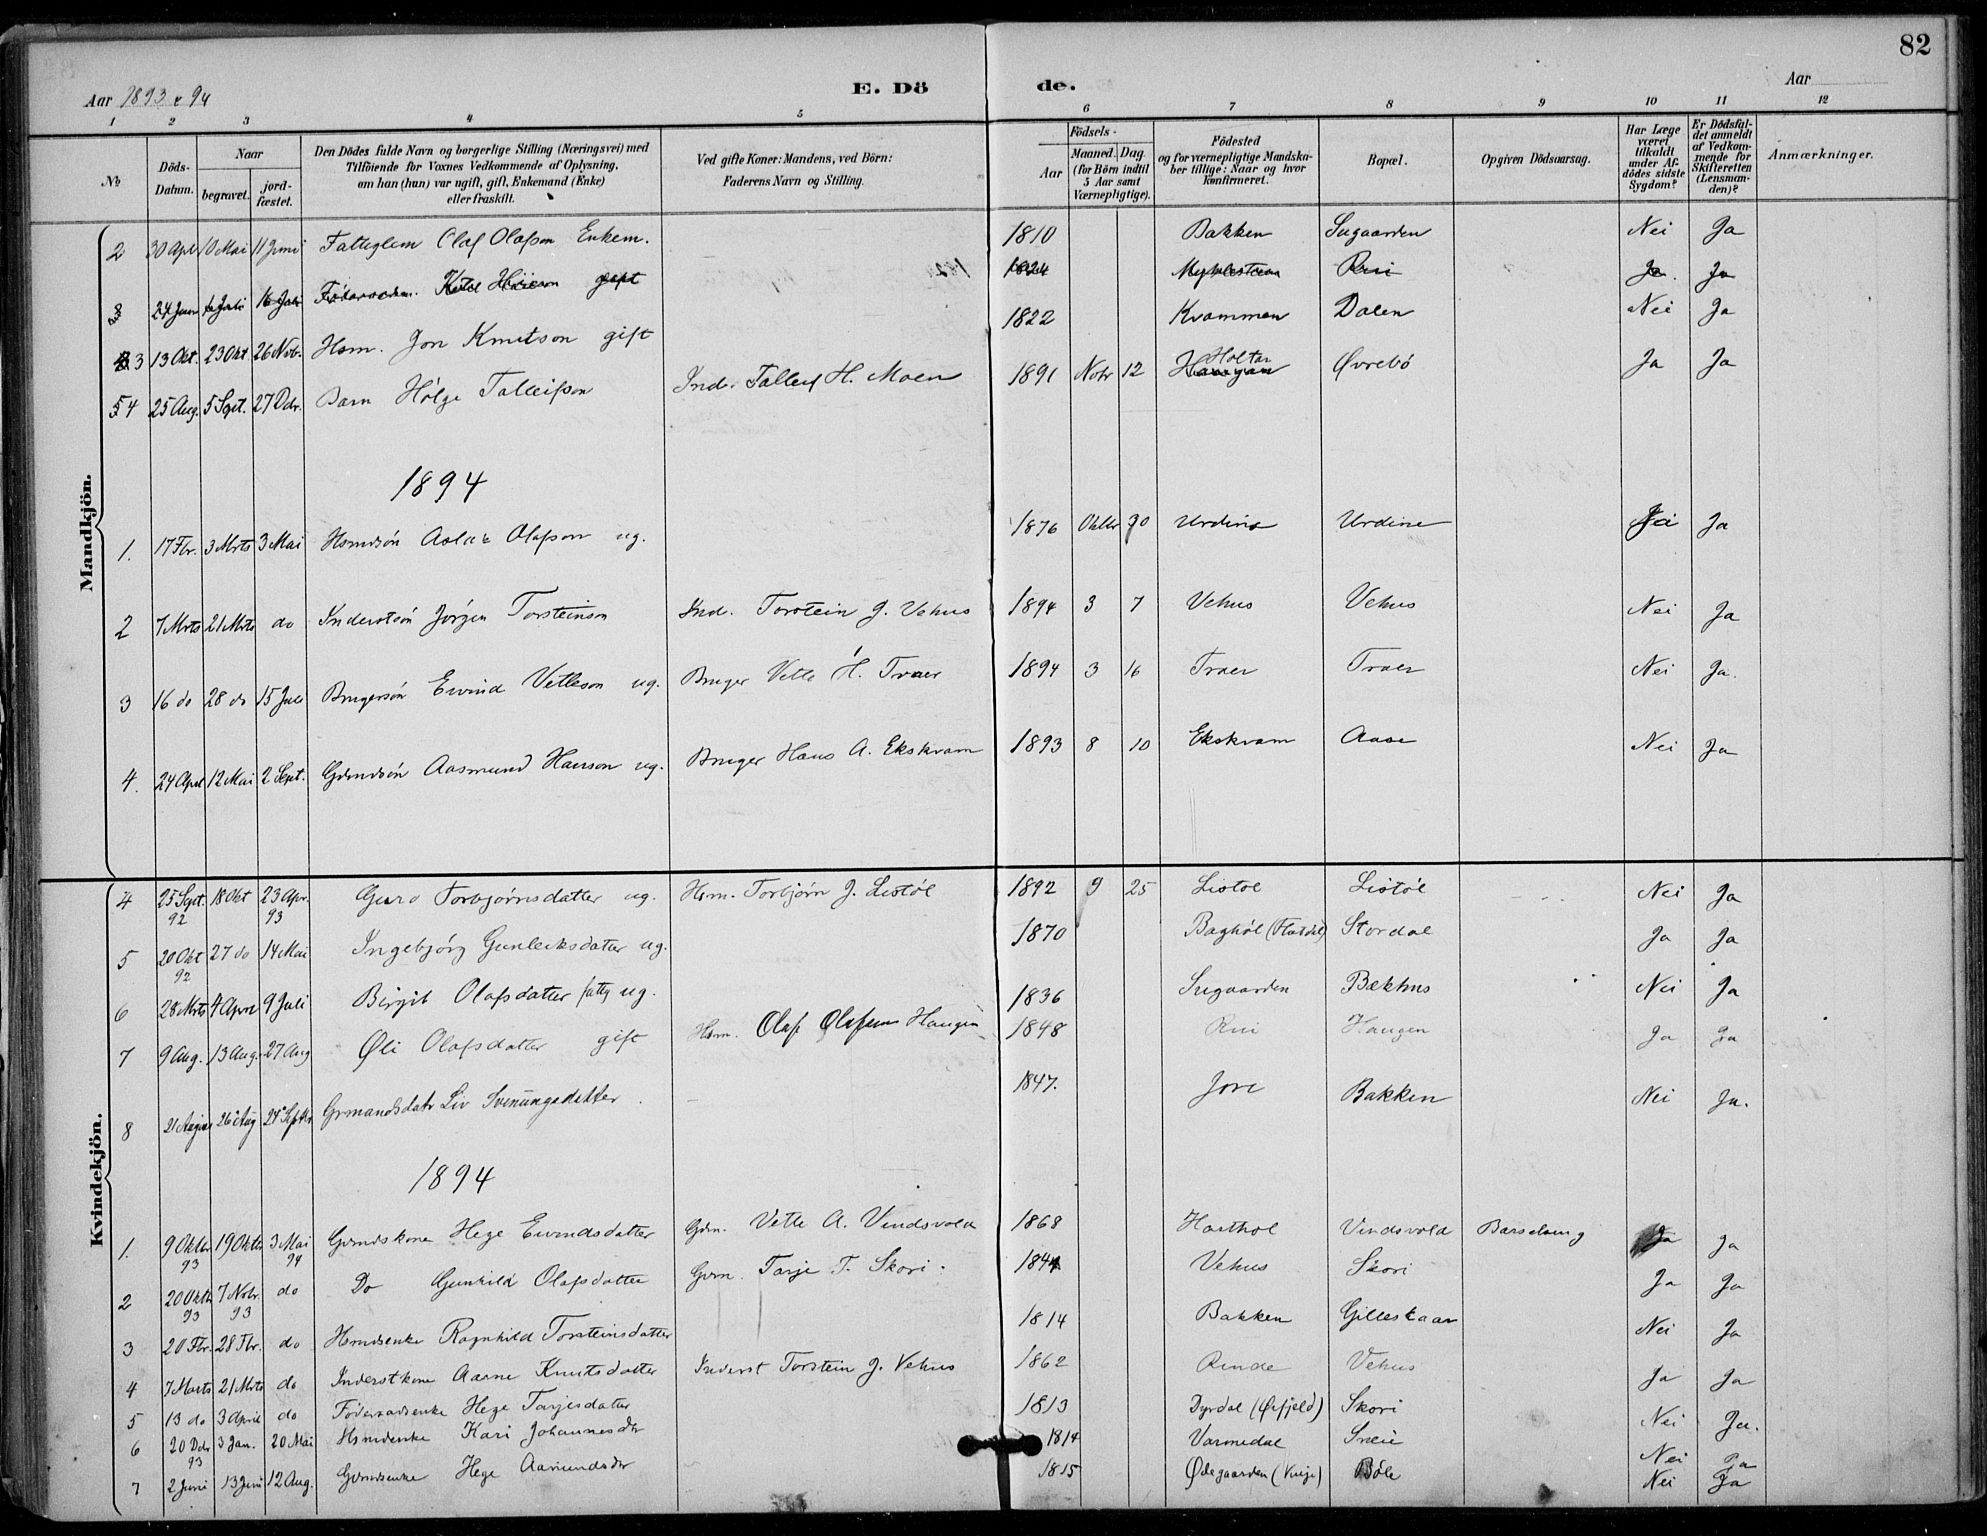 82
Aar 1893 & 94
E. Dö de.
Aar
1 2 3 4 5 6 7 8 9 10 11 12
No
Döds-Datum.
Naar
begravet.
jord-fæstet.
Den Dödes fulde Navn og borgerlige Stilling (Næringsvei) med Tilföiende for Voxnes Vedkommende af Oplysning, om han (hun) var ugift, gift, Enkemand (Enke) eller fraskilt.
Ved gifte Koner: Mandens, ved Börn: Faderens Navn og Stilling.
Födsels-
Aar
Maaned. Dag
(for Börn indtil 5 Aar samt Værnepligtige).
Födested og for værnepligtige Mandska-ber tillige: Naar og hvor konfirmeret.
Bopæl.
Opgiven Dödsaarsag.
Har Læge været tilkaldt under Af-dödes sidste Sygdom?
Er Dödsfal-det anmeldt af Vedkom-mende for Skifteretten (Lensman-den)?
Anmærkninger.
Mandkjön.
2 30 Apl 10 Mai 11 Juni Fattiglem Olaf Olafson Enkem. 1810 Bakken Sugaarden Nei Ja
3 24 Juni Juli 16 Juli gift 1824 Rui Ja. Ja
3 13 Okt. 23 Okt. 26 Nvb. Hsm. Jon Knutson gift 1822 Kvammen Dalen Nei Ja
4 25 Aug. 5 Sept. 27 Dcbr. Barn Hølge Talleifson Ind. Talleif H. Moen 1891 Nobr 12 Holtar Øvrebö Ja Ja
1894
1. 17 Fbr. 3 Mrts 3 Mai Hsmdsøn Aslak Olafson ug. 1876 Oktbr 30 Urdine Urdine Ja
2 7 Mrts 21 Mrts do Inderstsøn Jørgen Torsteinson Ind. Torstein J. Vehus 1894 3 7 Vehus Vehus Nei Ja
3 16 do 28 do 15 Juli Brugersøn Eivind Vetleson ug. Bruger Vetle H. Traer 1894 3 16 Traer Traer Nei Ja.
4. 24 April 12 Mai 2 Sept. Grmdsøn Aasmund Hanson ug. Bruger Hans A. Ekskvam 1893 8 10 Ekskvam Aase Nei Ja
Kvindekjön.
4 25 Sept. 92 18 Okt 23 Apr. 93 Guro Torbjørnsdatter ug. Hsm. Torbjørn J. Listøl 1892 9 25 Listøl Listøl Nei Ja
5 20 Okt 92 27 do 14 Mai Ingebjørg Gunleiksdatter ug. 1870 Baghøl (Flatdal) Stordal Ja Ja
6 28 Mrts 4 April 9 Juli Birgit Olafsdatter fattg ug. 1836 Sugaarden Bækhus Nei Ja
7 9 Aug. 13 Aug. 27 Aug Øli Olafsdatter gift Hsm. Olaf Olafson Haugen 1848 Rui Haugen Ja Ja
8 21 August 26 Aug 24 Septbr Grmandsdatr Liv Svenungsdatter. 1847. Jore Bakken Nei Ja.
1894
1. 9 Oktbr 93 19 Oktbr 3 Mai 94 Grmdskone Hege Eivindsdatter Grm. Vetle A. Vindsvold 1868 Haathol Vindsvold Barselseng Ja Ja
2 20 Oktbr 93 7 Nobr. 93 do Do Gunhild Olafsdatter Grm. Tarje T. Skori. 1844 Vehus Skori Ja Ja
3 20 Fbr. 28 Fbr. do Hsmdsenke Ragnhild Torsteinsdatter 1814 Bakken Gilleskaar Nei Ja
4 7 Marts 21 Mrts do Inderstkone Aasne Knutsdatter Inderst Torstein J. Vehus 1862 Rinde Vehus Ja Ja
5 13 do 3 April do Föderaadsenke Hege Tarjesdatter 1813 Dyrdal (Ørfjeld) Skori Nei Ja.
6 20 Dcbr 93 3 Jan. 20 Mai Hsmdsenke Kari Johannesdr 1814 Varmedal Sneie Nei Ja
7 2 Juni 13 Juni 12 Aug. Grmdsenke Hege Aamundsdr 1815 Ødegaarden Böle Nei Ja